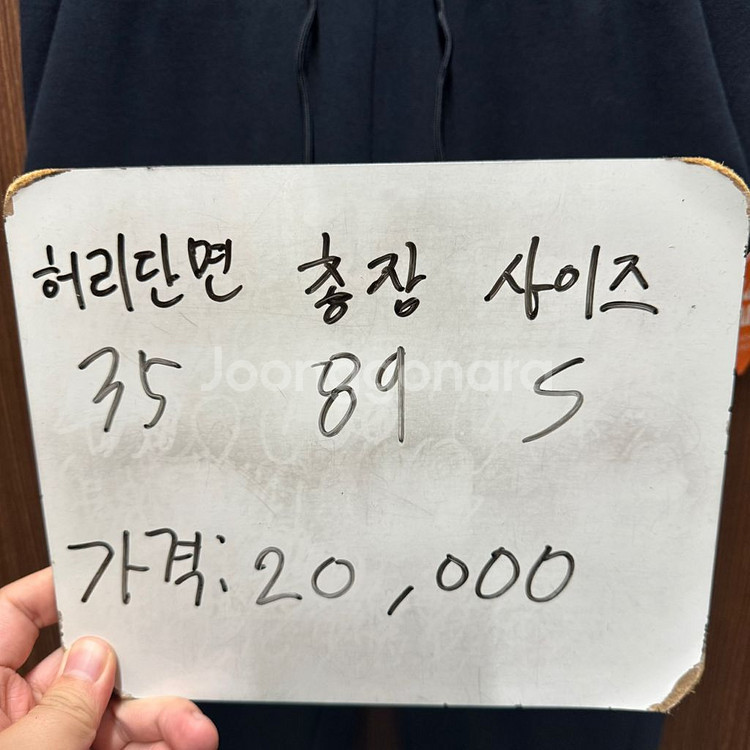 허리단면 총장 사이즈
35 89 S
Joonggonara
가격: 20,000